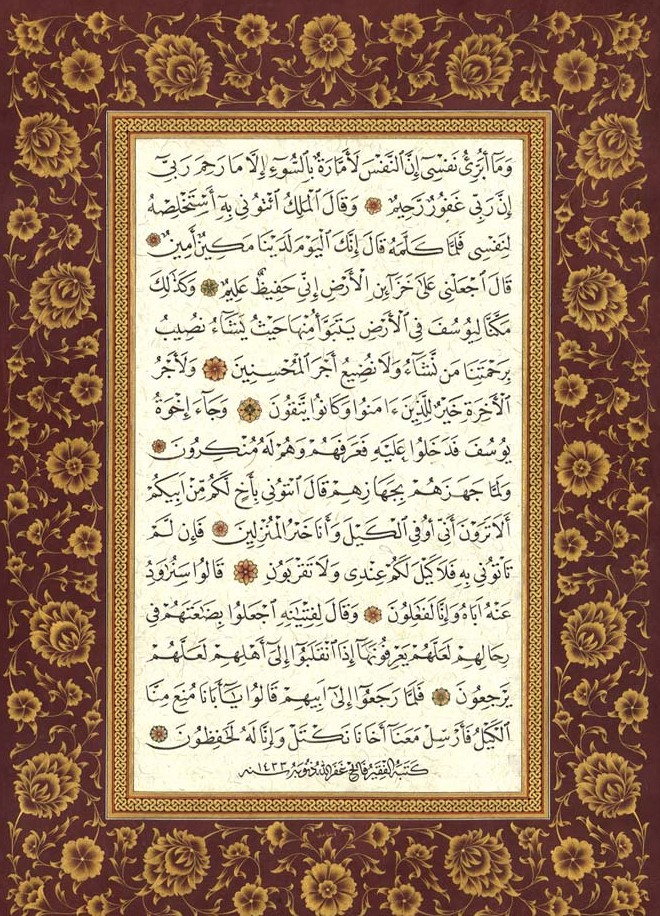 وَمَا أُبَرِّئُ نَفْسِىٓ إِنَّ ٱلنَّفْسَ لَأَمَّارَةٌۢ بِٱلسُّوٓءِ إِلَّا مَا رَحِمَ رَبِّىٓ
إِنَّ رَبِّى غَفُورٌ رَّحِيمٌ وَقَالَ ٱلْمَلِكُ ٱئْتُونِى بِهِۦٓ أَسْتَخْلِصْهُ
لِنَفْسِى فَلَمَّا كَلَّمَهُ قَالَ إِنَّكَ ٱلْيَوْمَ لَدَيْنَا مَكِينٌ أَمِينٌ
قَالَ ٱجْعَلْنِى عَلَىٰ خَزَآئِنِ ٱلْأَرْضِ إِنِّى حَفِيظٌ عَلِيمٌ وَكَذَٰلِكَ
مَكَّنَّا لِيُوسُفَ فِى ٱلْأَرْضِ يَتَبَوَّأُ مِنْهَا حَيْثُ يَشَآءُ نُصِيبُ
بِرَحْمَتِنَا مَن نَّشَآءُ وَلَا نُضِيعُ أَجْرَ ٱلْمُحْسِنِينَ وَلَأَجْرُ
ٱلْأَخِرَةِ خَيْرٌ لِّلَّذِينَ ءَامَنُوا وَكَانُوا يَتَّقُونَ وَجَآءَ إِخْوَةُ
يُوسُفَ فَدَخَلُوا عَلَيْهِ فَعَرَفَهُمْ وَهُمْ لَهُ مُنْكِرُونَ
وَلَمَّا جَهَّزَهُمْ بِجَهَازِهِمْ قَالَ ٱئْتُونِى بِأَخٍ لَّكُمْ مِّنْ أَبِيكُمْ
أَلَا تَرَوْنَ أَنِّىٓ أُوفِى ٱلْكَيْلَ وَأَنَا خَيْرُ ٱلْمُنْزِلِينَ فَإِن لَّمْ
تَأْتُونِى بِهِ فَلَا كَيْلَ لَكُمْ عِنْدِى وَلَا تَقْرَبُونِ قَالُوا سَنُرَاوِدُ
عَنْهُ أَبَاهُ وَإِنَّا لَفَٰعِلُونَ وَقَالَ لِفِتْيَٰنِهِ ٱجْعَلُوا بِضَٰعَتَهُمْ فِى
رِحَالِهِمْ لَعَلَّهُمْ يَعْرِفُونَهَآ إِذَا ٱنْقَلَبُوٓا إِلَىٰٓ أَهْلِهِمْ لَعَلَّهُمْ
يَرْجِعُونَ فَلَمَّا رَجَعُوٓا إِلَىٰٓ أَبِيهِمْ قَالُوا يَٰٓأَبَانَا مُنِعَ مِنَّا
ٱلْكَيْلُ فَأَرْسِلْ مَعَنَآ أَخَانَا نَكْتَلْ وَإِنَّا لَهُ لَحَٰفِظُونَ
كتبه الفقير فاتح غفر الله ذنوبه ١٤٣٣ سنه